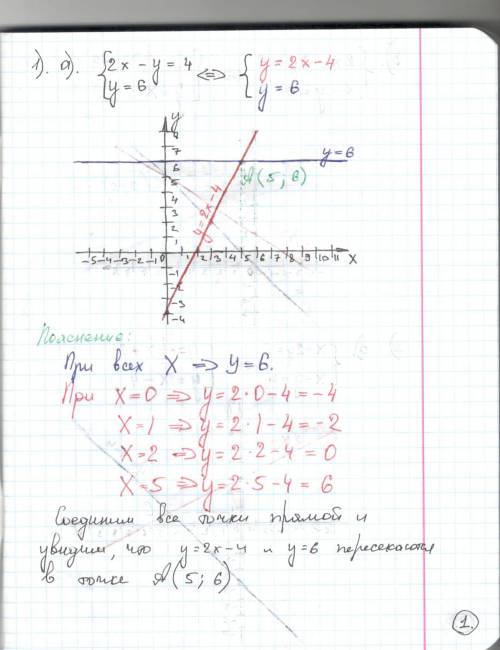 1). а). { 2x - y = 4 <=> { y = 2x-4
y = 6 y = 6
y
8
7
6
5
4
3
2
1
y=6
A(5; 6)
y=2x-4
-5 -4 -3 -2 -1 0 1 2 3 4 5 6 7 8 9 10 11 x
-1
-2
-3
-4
Пояснение:
При всех X => y=6.
При X=0 => y=2·0-4=-4
X=1 => y=2·1-4=-2
X=2 => y=2·2-4=0
X=5 => y=2·5-4=6
Соединим все точки прямой и
увидим, что y=2x-4 и y=6 пересекаются
в точке A(5; 6)
1.